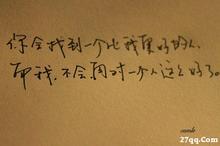 你会找到一个比我更好的人.
而我.不会再对一个人这么好了。
comb
27qq.Com